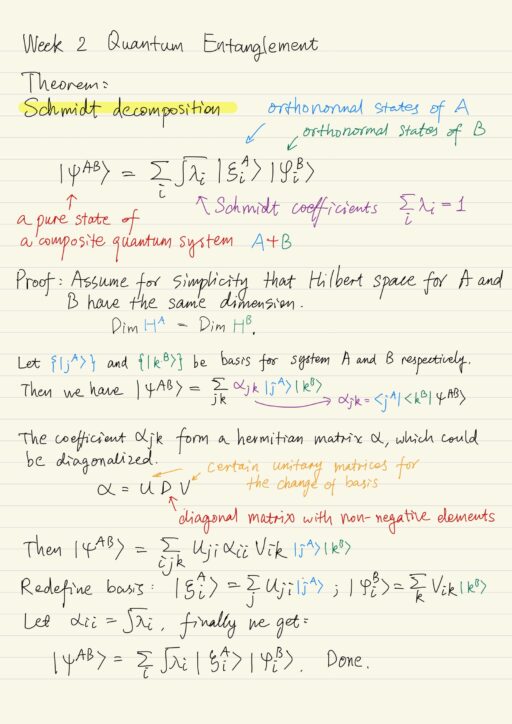 Week 2 Quantum Entanglement
Theorem:
Schmidt decomposition
orthonormal states of A
orthonormal states of B
|ψᴬᴮ⟩ = Σᵢ √λᵢ |ξᵢᴬ⟩ |φᵢᴮ⟩
Schmidt coefficients Σᵢ λᵢ = 1
a pure state of
a composite quantum system A+B
Proof: Assume for simplicity that Hilbert space for A and
B have the same dimension.
Dim Hᴬ = Dim Hᴮ.
Let {|jᴬ⟩} and {|kᴮ⟩} be basis for system A and B respectively.
Then we have |ψᴬᴮ⟩ = Σⱼₖ αjk |jᴬ⟩|kᴮ⟩
αjk = <jᴬ|<kᴮ|ψᴬᴮ⟩
The coefficient αjk form a hermitian matrix α, which could
be diagonalized.
certain unitary matrices for
the change of basis
α = U D V
diagonal matrix with non-negative elements
Then |ψᴬᴮ⟩ = Σᵢⱼₖ Uji αii Vik |jᴬ⟩|kᴮ⟩
Redefine basis: |ξᵢᴬ⟩ = Σⱼ Uji |jᴬ⟩ ; |φᵢᴮ⟩ = Σₖ Vik |kᴮ⟩
Let αii = √λᵢ, finally we get:
|ψᴬᴮ⟩ = Σᵢ √λᵢ |ξᵢᴬ⟩ |φᵢᴮ⟩. Done.